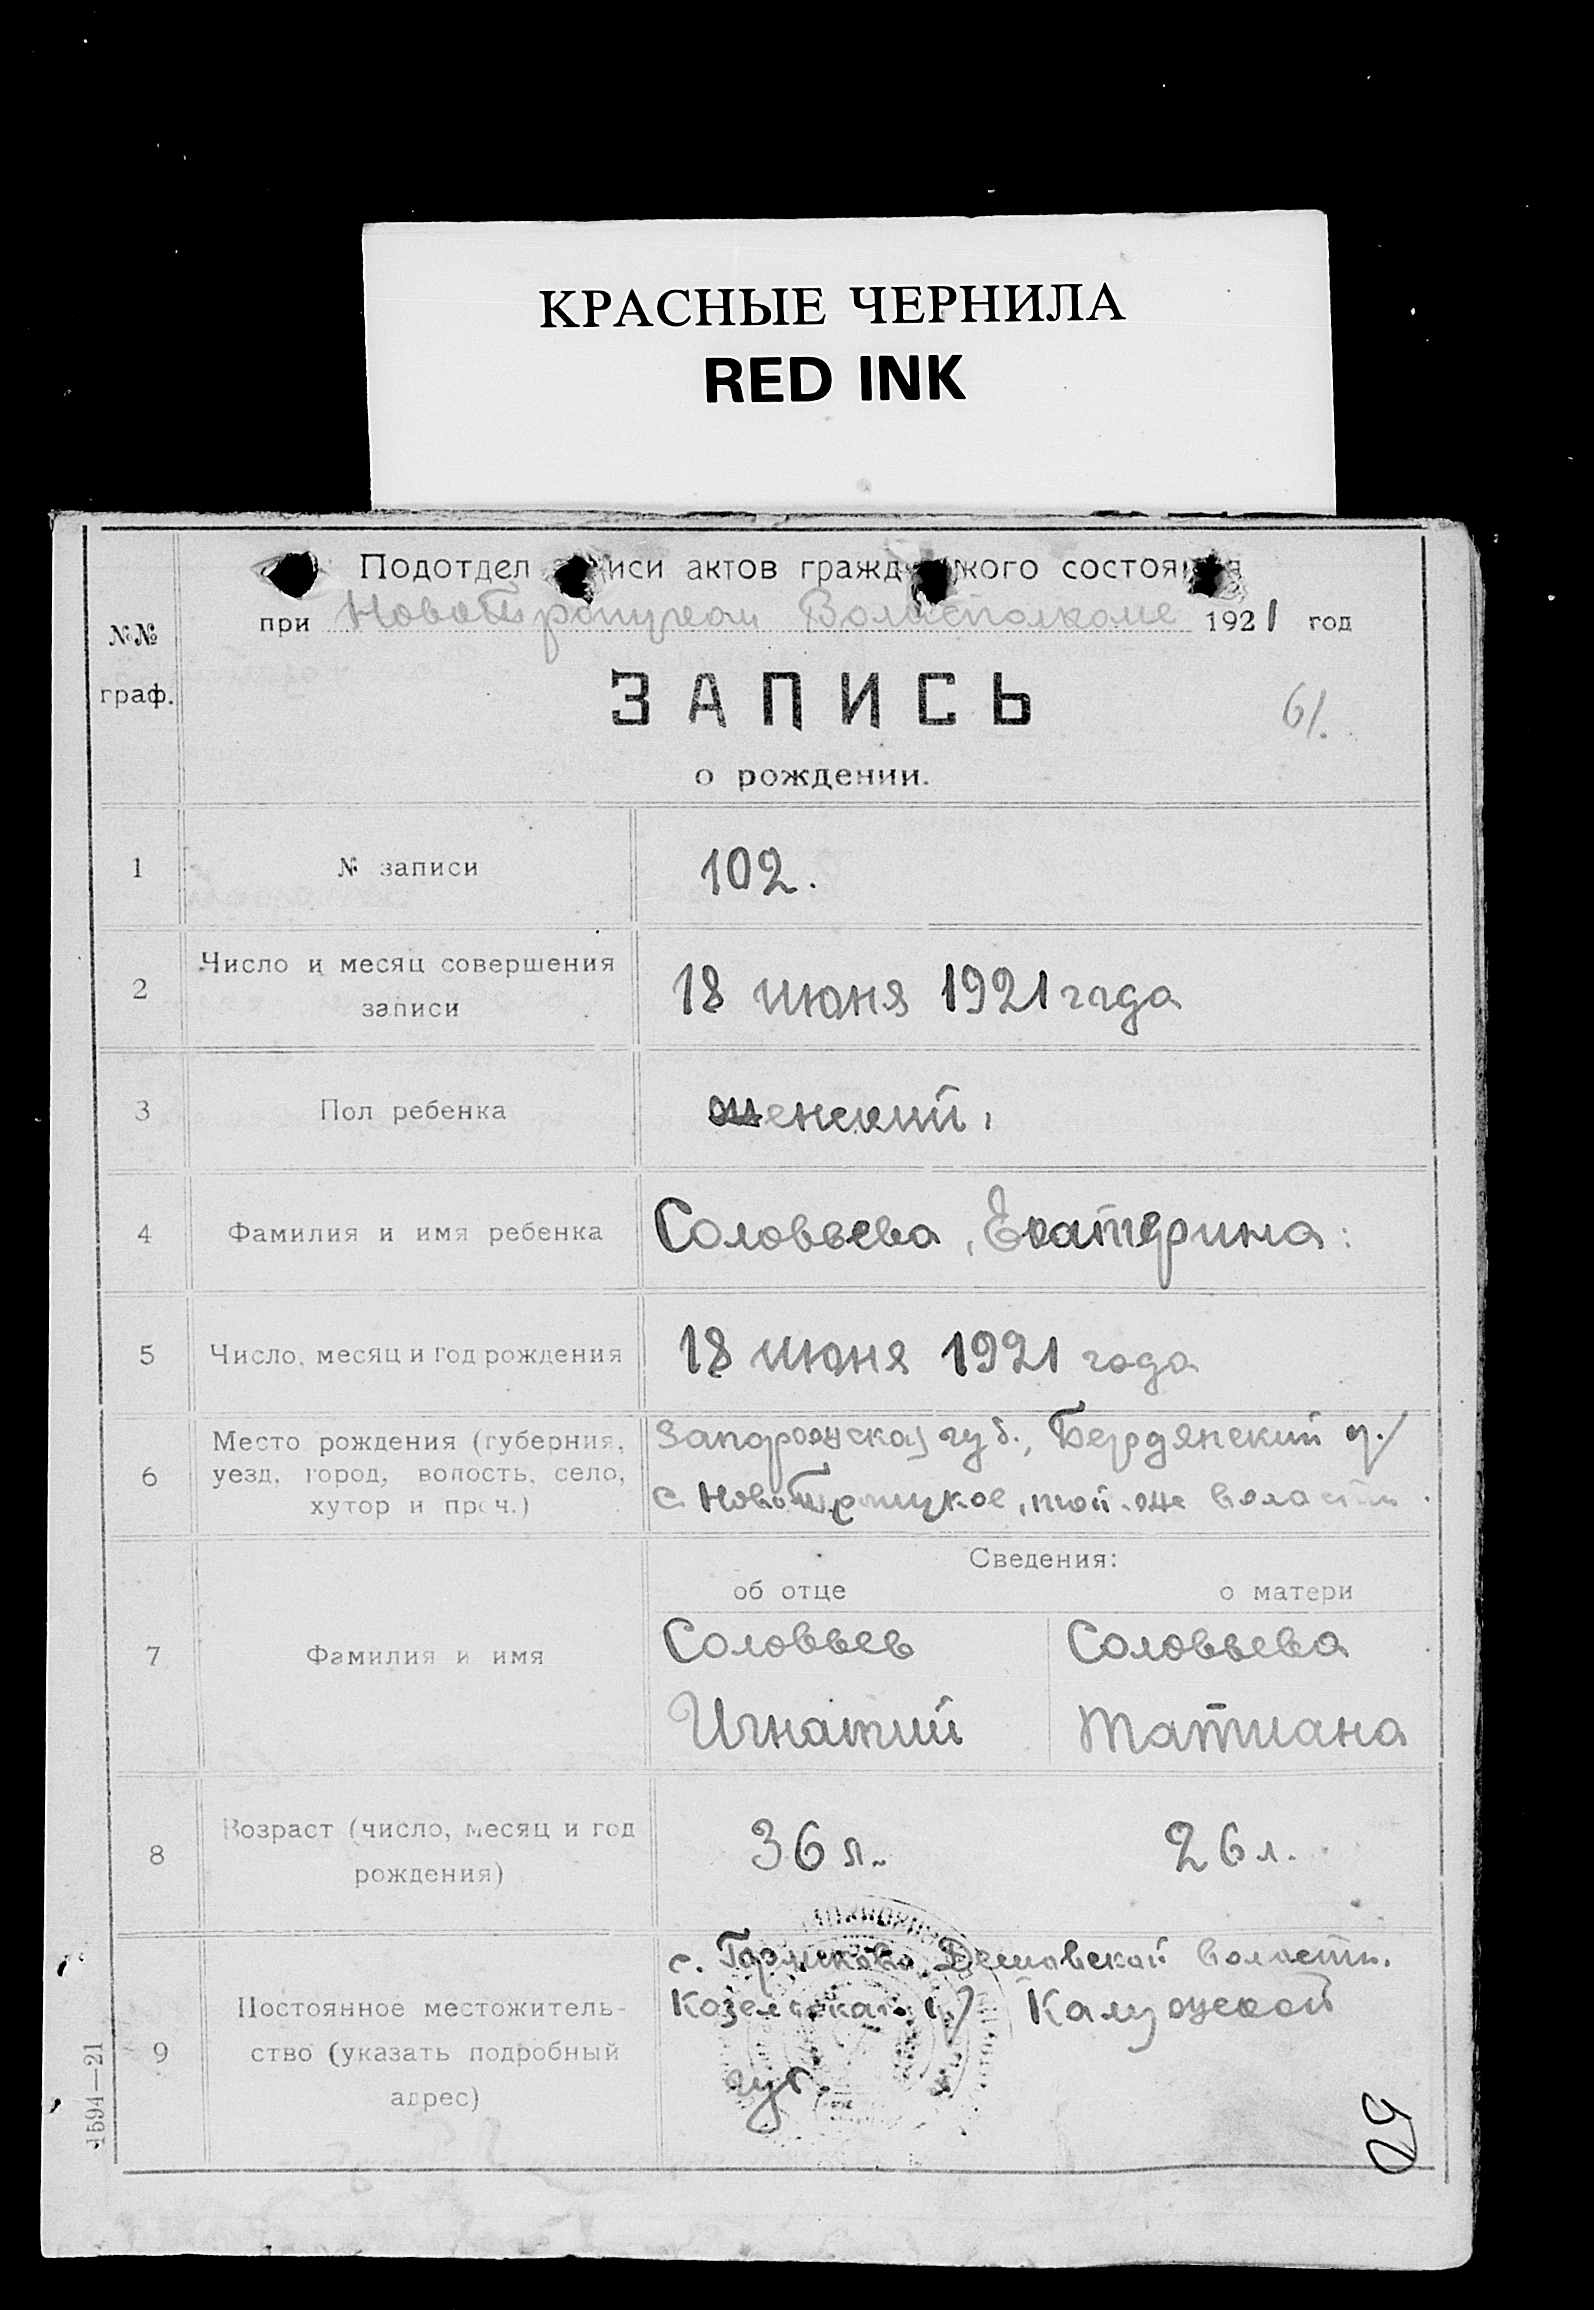 КРАСНЫЕ ЧЕРНИЛА
RED INK
Подотдел записи актов гражданского состояния
при НовоТроицком Волисполкоме 1921 год
№№
граф.
ЗАПИСЬ
61.
о рождении.
1 № записи 102.
2 Число и месяц совершения
записи
18 июня 1921 года
3 Пол ребенка женский,
4 Фамилия и имя ребенка Соловьева, Екатерина:
5 Число, месяц и год рождения 18 июня 1921 года
6 Место рождения (губерния,
уезд, город, волость, село,
хутор и проч.)
Запорожская губ., Бердянский у./
с. НовоТроицкое, той-же волости.
Сведения:
об отце о матери
7 Фамилия и имя
Соловьев Соловьева
Игнатий Татиана
8 Возраст (число, месяц и год
рождения)
36 л. 26 л.
9 Постоянное местожитель-
ство (указать подробный
адрес)
с. Волости.
Козельскаго у/ Калужской
губ.
1594—21
50